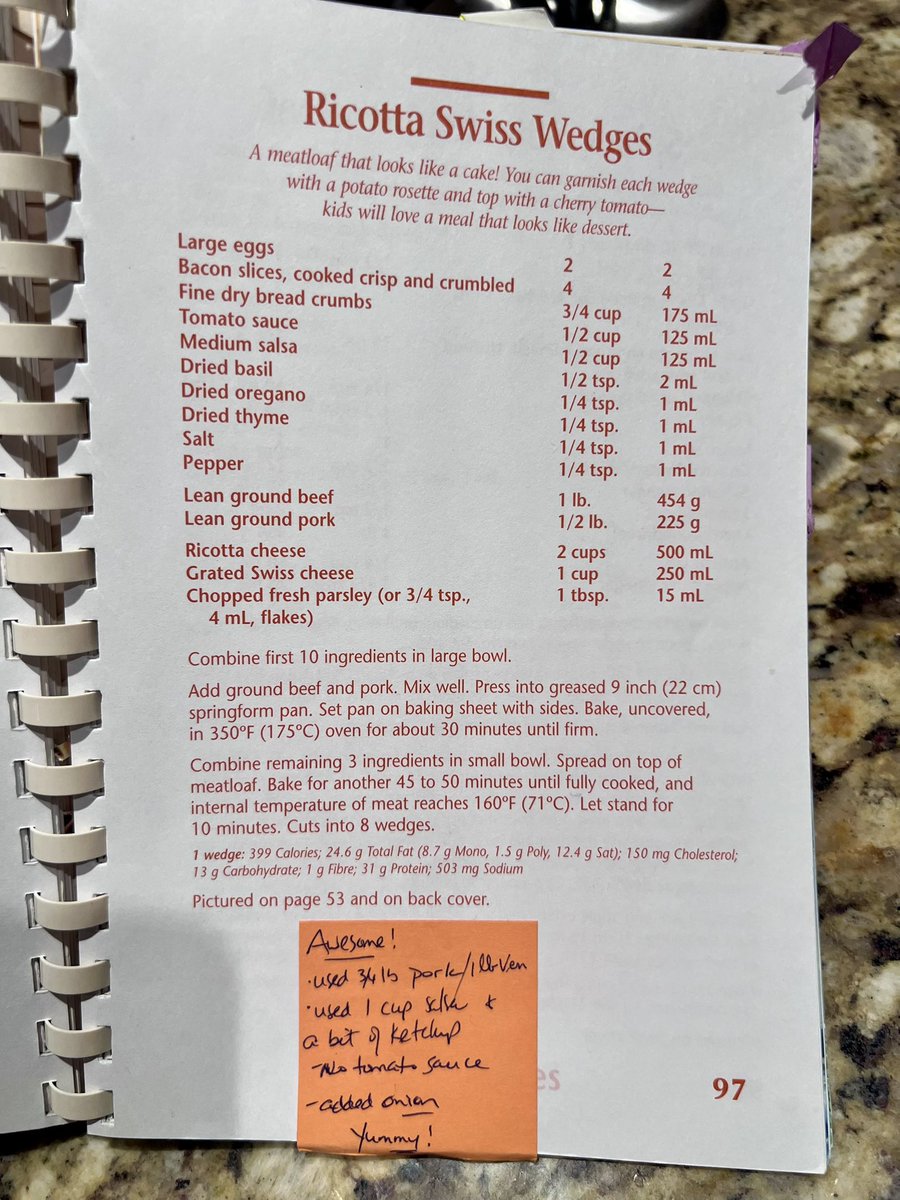 Ricotta Swiss Wedges
A meatloaf that looks like a cake! You can garnish each wedge
with a potato rosette and top with a cherry tomato—
kids will love a meal that looks like dessert.
Large eggs 2 2
Bacon slices, cooked crisp and crumbled 4 4
Fine dry bread crumbs 3/4 cup 175 mL
Tomato sauce 1/2 cup 125 mL
Medium salsa 1/2 cup 125 mL
Dried basil 1/2 tsp. 2 mL
Dried oregano 1/4 tsp. 1 mL
Dried thyme 1/4 tsp. 1 mL
Salt 1/4 tsp. 1 mL
Pepper 1/4 tsp. 1 mL
Lean ground beef 1 lb. 454 g
Lean ground pork 1/2 lb. 225 g
Ricotta cheese 2 cups 500 mL
Grated Swiss cheese 1 cup 250 mL
Chopped fresh parsley (or 3/4 tsp., 1 tbsp. 15 mL
4 mL, flakes)
Combine first 10 ingredients in large bowl.
Add ground beef and pork. Mix well. Press into greased 9 inch (22 cm)
springform pan. Set pan on baking sheet with sides. Bake, uncovered,
in 350ºF (175ºC) oven for about 30 minutes until firm.
Combine remaining 3 ingredients in small bowl. Spread on top of
meatloaf. Bake for another 45 to 50 minutes until fully cooked, and
internal temperature of meat reaches 160ºF (71ºC). Let stand for
10 minutes. Cuts into 8 wedges.
1 wedge: 399 Calories; 24.6 g Total Fat (8.7 g Mono, 1.5 g Poly, 12.4 g Sat); 150 mg Cholesterol;
13 g Carbohydrate; 1 g Fibre; 31 g Protein; 503 mg Sodium
Pictured on page 53 and on back cover.
Awesome!
·used 3/4 lb pork/1 lb Ven
·used 1 cup salsa &
a bit of ketchup
-No tomato sauce
-added onion
Yummy!
es
97